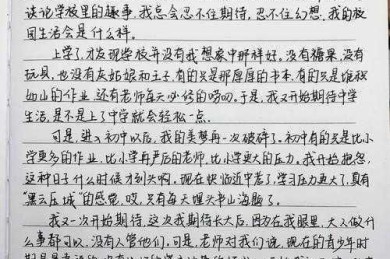 谈论学校里的趣事,我总会忍不住期待,忍不住幻想,我的校
园生活会是什么样。
上学了,才发现学校并没有我想象中那样好,没有糖果,没有
玩具,也没有灰姑娘和王子,有的只是那厚厚的书本,有的只是堆积
如山的作业,还有老师每天必修的唠叨。于是,我又开始期待中学
生活,是不是上了中学就会轻松一点。
可是,进入初中以后,我的美梦再一次破碎了。初中有的只是比小
学更多的作业,比小学再严厉的老师,比小学更大的压力。我开始抱怨,
这种日子什么时候才到头啊。现在快临近中考了,学习压力更大了,真有
"黑云压城"的感觉,哎,只有每天埋头书山题海了。
我又一次开始期待,这次我期待长大后,因为在我眼里,大人做什
么事都可以,没有人管他们。可是,老师对我们说,现在的青少年时